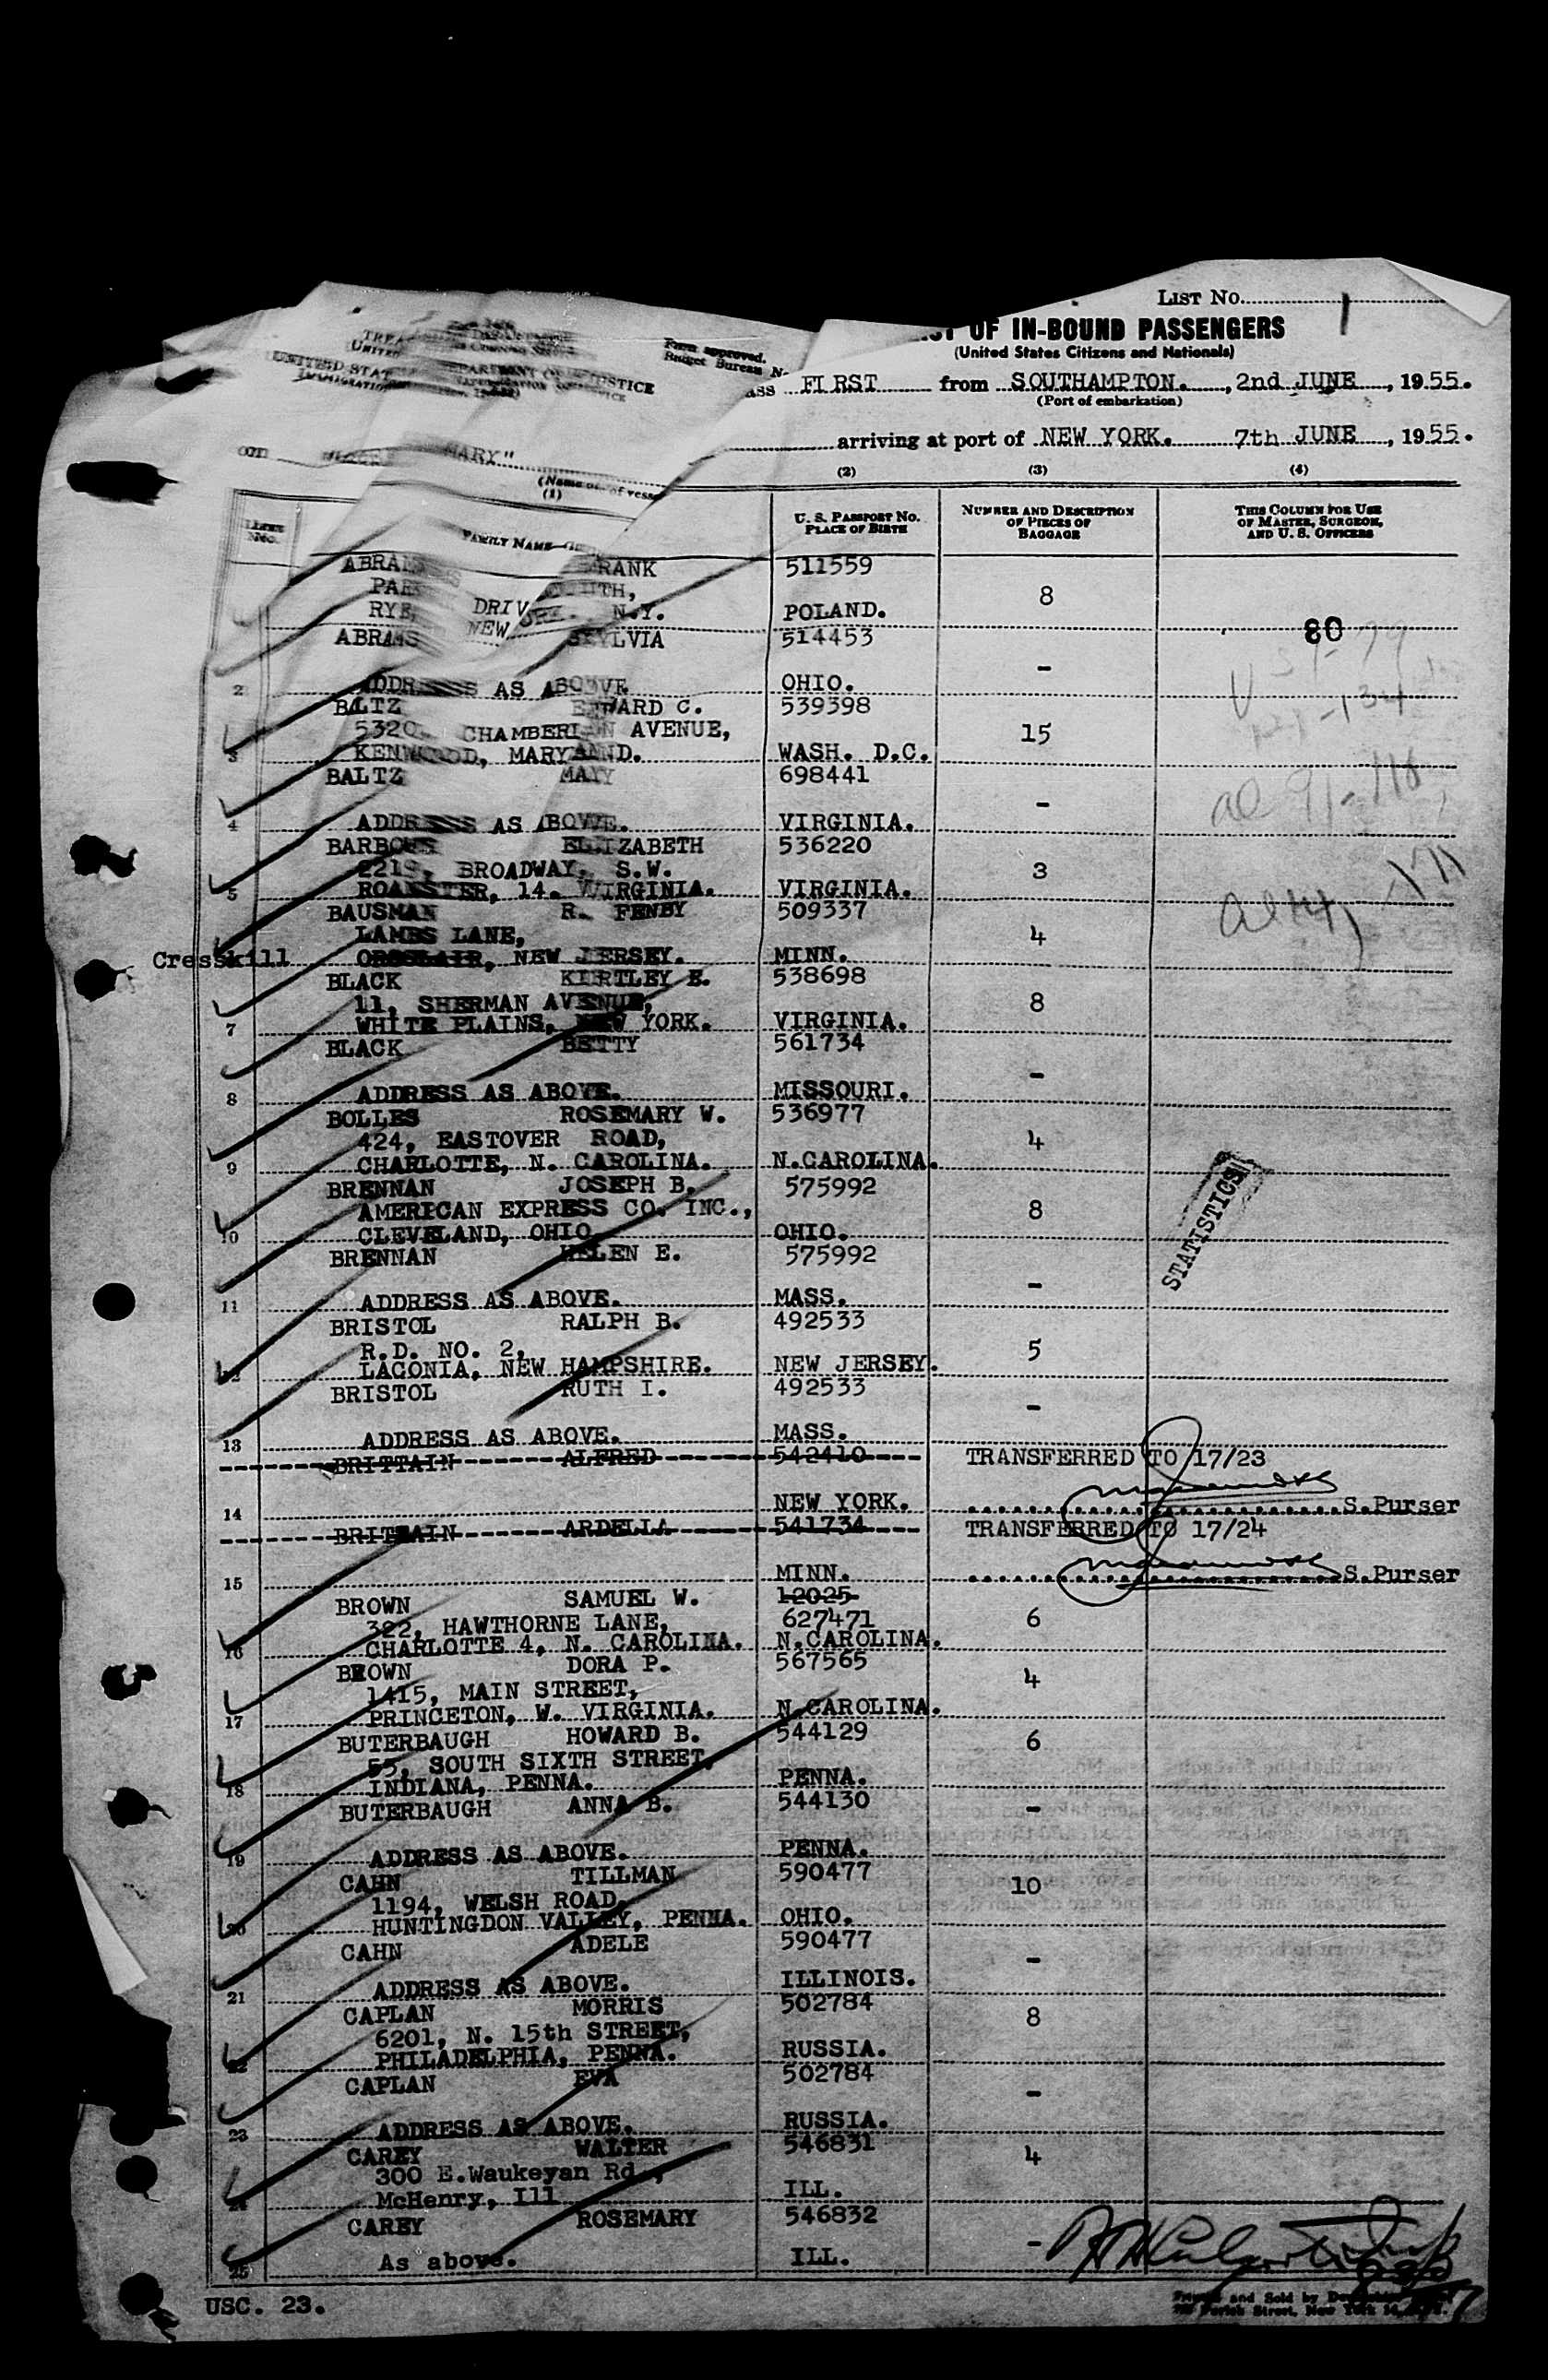 LIST No. 1
OF IN-BOUND PASSENGERS
(United States Citizens and Nationals)
Form approved.
Budget Bureau
FIRST from SOUTHAMPTON., 2nd JUNE, 1955.
(Port of embarkation)
on MARY" arriving at port of NEW YORK. 7th JUNE, 1955.
(1) (2) (3) (4)
FAMILY NAME
U. S. PASSPORT NO.
PLACE OF BIRTH
NUMBER AND DESCRIPTION
OF PIECES OF
BAGGAGE
THIS COLUMN FOR USE
OF MASTER, SURGEON,
AND U. S. OFFICERS
RANK 511559
8
RYE, N.Y. POLAND.
80
ABRAMS SYLVIA 514453
-
2 ADDRESS AS ABOVE OHIO.
BALTZ 539398
CHAMBERLAIN AVENUE, 15
3 KENWOOD, MARYLAND. WASH. D.C.
BALTZ MARY 698441
-
4 ADDRESS AS ABOVE. VIRGINIA.
BARBOUR ELIZABETH 536220
BROADWAY, S.W. 3
5 14. VIRGINIA. VIRGINIA.
BAUSMAN R. FENBY 509337
LAMBS LANE, 4
Cresskill NEW JERSEY. MINN.
BLACK KIRTLEY E. 538698
11, SHERMAN AVENUE, 8
7 WHITE PLAINS, NEW YORK. VIRGINIA.
BLACK BETTY 561734
-
8 ADDRESS AS ABOVE. MISSOURI.
BOLLES ROSEMARY W. 536977
424, EASTOVER ROAD, 4
9 CHARLOTTE, N. CAROLINA. N.CAROLINA.
BRENNAN JOSEPH B. 575992
AMERICAN EXPRESS CO. INC., 8
10 CLEVELAND, OHIO OHIO.
STATISTICS
BRENNAN HELEN E. 575992
-
11 ADDRESS AS ABOVE. MASS.
BRISTOL RALPH B. 492533
R.D. NO. 2, 5
12 LACONIA, NEW HAMPSHIRE. NEW JERSEY.
BRISTOL RUTH I. 492533
-
13 ADDRESS AS ABOVE. MASS.
BRITTAIN ALFRED 542410 TRANSFERRED TO 17/23
14 NEW YORK. S.Purser
BRITTAIN ARDELLA 541734 TRANSFERRED TO 17/24
15 MINN. S.Purser
BROWN SAMUEL W. 12025
322, HAWTHORNE LANE, 627471 6
16 CHARLOTTE 4, N. CAROLINA. N.CAROLINA.
BROWN DORA P. 567565
1415, MAIN STREET, 4
17 PRINCETON, W. VIRGINIA. N.CAROLINA.
BUTERBAUGH HOWARD B. 544129
55, SOUTH SIXTH STREET, 6
18 INDIANA, PENNA. PENNA.
BUTERBAUGH ANNA B. 544130
-
19 ADDRESS AS ABOVE. PENNA.
CAHN TILLMAN 590477
1194, WELSH ROAD, 10
20 HUNTINGDON VALLEY, PENNA. OHIO.
CAHN ADELE 590477
-
21 ADDRESS AS ABOVE. ILLINOIS.
CAPLAN MORRIS 502784
6201, N. 15th STREET, 8
22 PHILADELPHIA, PENNA. RUSSIA.
CAPLAN EVA 502784
-
23 ADDRESS AS ABOVE. RUSSIA.
CAREY WALTER 546831
300 E.Waukeyan Rd., 4
24 McHenry, Ill ILL.
CAREY ROSEMARY 546832
-
25 As above. ILL.
USC. 23.